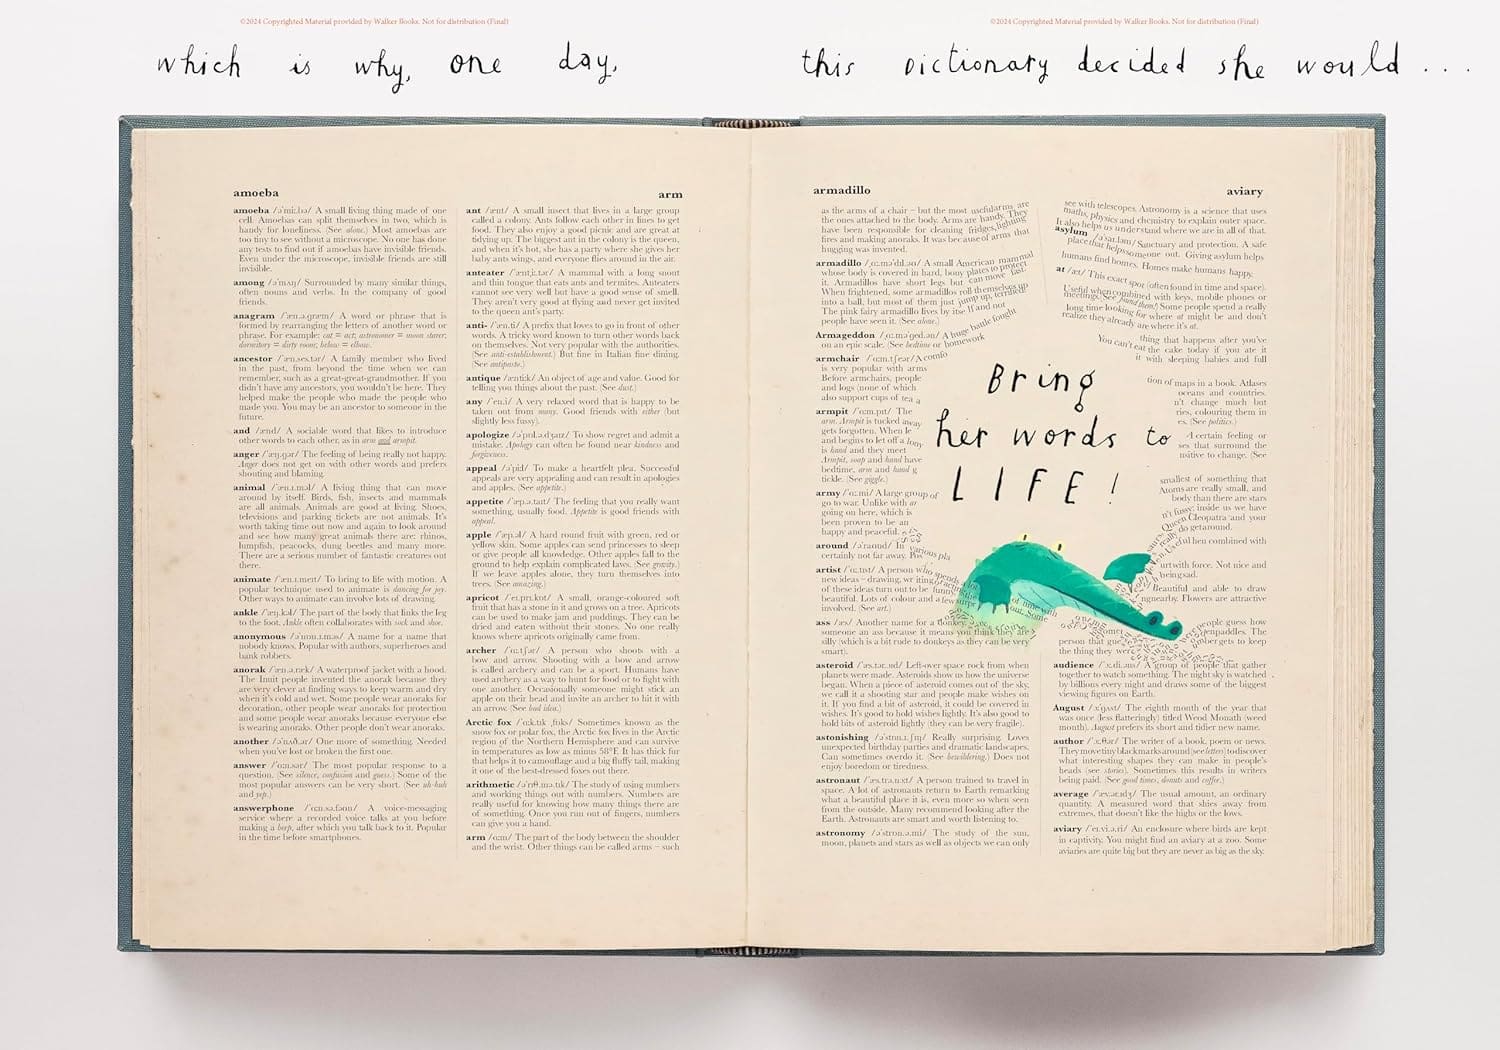 ©2024 Copyrighted Material provided by Walker Books. Not for distribution (Final)
©2024 Copyrighted Material provided by Walker Books. Not for distribution (Final)
which is why, one day,
this dictionary decided she would ...
amoeba
arm
amoeba /əˈmiː.bə/ A small living thing made of one
cell. Amoebas can split themselves in two, which is
handy for loneliness. (See alone.) Most amoebas are
too tiny to see without a microscope. No one has done
any tests to find out if amoebas have invisible friends.
Even under the microscope, invisible friends are still
invisible.
among /əˈmʌŋ/ Surrounded by many similar things,
often nouns and verbs. In the company of good
friends.
anagram /ˈæn.ə.ɡræm/ A word or phrase that is
formed by rearranging the letters of another word or
phrase. For example: cat = act; astronomer = moon starer;
dormitory = dirty room; below = elbow.
ancestor /ˈæn.ses.tər/ A family member who lived
in the past, from beyond the time when we can
remember, such as a great-great-grandmother. If you
didn't have any ancestors, you wouldn't be here. They
helped make the people who made the people who
made you. You may be an ancestor to someone in the
future.
and /ænd/ A sociable word that likes to introduce
other words to each other, as in arm and armpit.
anger /ˈæŋ.ɡər/ The feeling of being really not happy.
Anger does not get on with other words and prefers
shouting and blaming.
animal /ˈæn.ɪ.məl/ A living thing that can move
around by itself. Birds, fish, insects and mammals
are all animals. Animals are good at living. Shoes,
televisions and parking tickets are not animals. It's
worth taking time out now and again to look around
and see how many great animals there are: rhinos,
lumpfish, peacocks, dung beetles and many more.
There are a serious number of fantastic creatures out
there.
animate /ˈæn.ɪ.meɪt/ To bring to life with motion. A
popular technique used to animate is dancing for joy.
Other ways to animate can involve lots of drawing.
ankle /ˈæŋ.kəl/ The part of the body that links the leg
to the foot. Ankle often collaborates with sock and shoe.
anonymous /əˈnɒn.ɪ.məs/ A name for a name that
nobody knows. Popular with authors, superheroes and
bank robbers.
anorak /ˈæn.ə.ræk/ A waterproof jacket with a hood.
The Inuit people invented the anorak because they
are very clever at finding ways to keep warm and dry
when it's cold and wet. Some people wear anoraks for
decoration, other people wear anoraks for protection
and some people wear anoraks because everyone else
is wearing anoraks. Other people don't wear anoraks.
another /əˈnʌð.ər/ One more of something. Needed
when you've lost or broken the first one.
answer /ˈɑːn.sər/ The most popular response to a
question. (See silence, confusion and guess.) Some of the
most popular answers can be very short. (See uh-huh
and yep.)
answerphone /ˈɑːn.sə.fəʊn/ A voice-messaging
service where a recorded voice talks at you before
making a beep, after which you talk back to it. Popular
in the time before smartphones.
ant /ænt/ A small insect that lives in a large group
called a colony. Ants follow each other in lines to get
food. They also enjoy a good picnic and are great at
tidying up. The biggest ant in the colony is the queen,
and when it's hot, she has a party where she gives her
baby ants wings, and everyone flies around in the air.
anteater /ˈæntˌiː.tər/ A mammal with a long snout
and thin tongue that eats ants and termites. Anteaters
cannot see very well but have a good sense of smell.
They aren't very good at flying and never get invited
to the queen ant's party.
anti- /ˈæn.ti/ A prefix that loves to go in front of other
words. A tricky word known to turn other words back
on themselves. Not very popular with the authorities.
(See anti-establishment.) But fine in Italian fine dining.
(See antipasto.)
antique /ænˈtiːk/ An object of age and value. Good for
telling you things about the past. (See dust.)
any /ˈen.i/ A very relaxed word that is happy to be
taken out from many. Good friends with either (but
slightly less fussy).
apologize /əˈpɒl.ə.dʒaɪz/ To show regret and admit a
mistake. Apology can often be found near kindness and
forgiveness.
appeal /əˈpiːl/ To make a heartfelt plea. Successful
appeals are very appealing and can result in apologies
and apples. (See appetite.)
appetite /ˈæp.ə.taɪt/ The feeling that you really want
something, usually food. Appetite is good friends with
appeal.
apple /ˈæp.əl/ A hard round fruit with green, red or
yellow skin. Some apples can send princesses to sleep
or give people all knowledge. Other apples fall to the
ground to help explain complicated laws. (See gravity.)
If we leave apples alone, they turn themselves into
trees. (See amazing.)
apricot /ˈeɪ.prɪ.kɒt/ A small, orange-coloured soft
fruit that has a stone in it and grows on a tree. Apricots
can be used to make jam and puddings. They can be
dried and eaten without their stones. No one really
knows where apricots originally came from.
archer /ˈɑː.tʃər/ A person who shoots with a
bow and arrow. Shooting with a bow and arrow
is called archery and can be a sport. Humans have
used archery as a way to hunt for food or to fight with
one another. Occasionally someone might stick an
apple on their head and invite an archer to hit it with
an arrow. (See bad idea.)
Arctic fox /ˈɑːk.tɪk ˌfɒks/ Sometimes known as the
snow fox or polar fox, the Arctic fox lives in the Arctic
region of the Northern Hemisphere and can survive
in temperatures as low as minus 58°F. It has thick fur
that helps it to camouflage and a big fluffy tail, making
it one of the best-dressed foxes out there.
arithmetic /əˈrɪθ.mə.tɪk/ The study of using numbers
and working things out with numbers. Numbers are
really useful for knowing how many things there are
of something. Once you run out of fingers, numbers
can give you a hand.
arm /ɑːm/ The part of the body between the shoulder
and the wrist. Other things can be called arms – such
armadillo
aviary
as the arms of a chair – but the most useful arms are
the ones attached to the body. Arms are handy. They
have been responsible for cleaning fridges, lighting
fires and making anoraks. It was because of arms that
hugging was invented.
armadillo /ˌɑː.məˈdɪl.əʊ/ A small American mammal
whose body is covered in hard, bony plates to protect
it. Armadillos have short legs but can move fast.
When frightened, some armadillos roll themselves up
into a ball, but most of them just jump up, terrified!
The pink fairy armadillo lives by itself and not
people have seen it. (See alone.)
Armageddon /ˌɑː.məˈɡed.ən/ A huge battle fought
on an epic scale. (See bedtime or homework
armchair /ˈɑːm.tʃeər/ A comfo
is very popular with arms
Before armchairs, people
and logs (none of which
also support cups of tea a
armpit /ˈɑːm.pɪt/ The
arm. Armpit is tucked away
gets forgotten. When le
and begins to let off a
is hand and they meet
Armpit, soap and hand have
bedtime, arm and hand g
tickle. (See giggle.)
army /ˈɑː.mi/ A large group of
go to war. Unlike with ar
going on here, which is
been proven to be an
happy and peaceful.
around /əˈraʊnd/ In various pla
certainly not far away. Pos
artist /ˈɑː.tɪst/ A person who spends a lot of time with
new ideas – drawing, writing
of these ideas turn out to be funny
beautiful. Lots of colour and a few surpr
involved. (See art.)
ass /æs/ Another name for a donkey.
someone an ass because it means you think they are
silly (which is a bit rude to donkeys as they can be very
smart).
asteroid /ˈæs.tər.ɔɪd/ Left-over space rock from when
planets were made. Asteroids show us how the universe
began. When a piece of asteroid comes out of the sky,
we call it a shooting star and people make wishes on
it. If you find a bit of asteroid, it could be covered in
wishes. It's good to hold wishes lightly. It's also good to
hold bits of asteroid lightly (they can be very fragile).
astonishing /əˈstɒn.ɪ.ʃɪŋ/ Really surprising. Loves
unexpected birthday parties and dramatic landscapes.
Can sometimes overdo it. (See bewildering.) Does not
enjoy boredom or tiredness.
astronaut /ˈæs.trə.nɔːt/ A person trained to travel in
space. A lot of astronauts return to Earth remarking
what a beautiful place it is, even more so when seen
from the outside. Many recommend looking after the
Earth. Astronauts are smart and worth listening to.
astronomy /əˈstrɒn.ə.mi/ The study of the sun,
moon, planets and stars as well as objects we can only
see with telescopes. Astronomy is a science that uses
maths, physics and chemistry to explain outer space.
It also helps us understand where we are in all of that.
asylum /əˈsaɪ.ləm/ Sanctuary and protection. A safe
place that helps someone out. Giving asylum helps
humans find homes. Homes make humans happy.
at /æt/ This exact spot (often found in time and space).
Useful when combined with keys, mobile phones or
meetings. (See found them!) Some people spend a really
long time looking for where at might be and don't
realize they already are where it's at.
You can't eat
thing that happens after you've
the cake today if you ate it
it with sleeping babies and full
tion of maps in a book. Atlases
oceans and countries.
n't change much but
ries, colouring them in
es. (See politics.)
A certain feeling or
ses that surround the
nsitive to change. (See
smallest of something that
Atoms are really small, and
body than there are stars
n't fussy; inside us we have
Queen Cleopatra and your
do get around.
Useful hen combined with
urt with force. Not nice and
being sad.
Beautiful and able to draw
ng nearby. Flowers are attractive
Bring
her words to
LIFE!
people guess how
person that gue
the thing they were
audience /ˈɔː.di.əns/ A group of people that gather
together to watch something. The night sky is watched
by billions every night and draws some of the biggest
viewing figures on Earth.
August /ˈɔː.ɡʌst/ The eighth month of the year that
was once (less flatteringly) titled Weod Monath (weed
month). August prefers its short and tidier new name.
author /ˈɔː.θər/ The writer of a book, poem or news.
They move tiny black marks around (see letters) to discover
what interesting shapes they can make in people's
heads (see stories). Sometimes this results in writers
being paid. (See good times, donuts and coffee.)
average /ˈæv.ər.ɪdʒ/ The usual amount, an ordinary
quantity. A measured word that shies away from
extremes, that doesn't like the highs or the lows.
aviary /ˈeɪ.vi.ə.ri/ An enclosure where birds are kept
in captivity. You might find an aviary at a zoo. Some
aviaries are quite big but they are never as big as the sky.